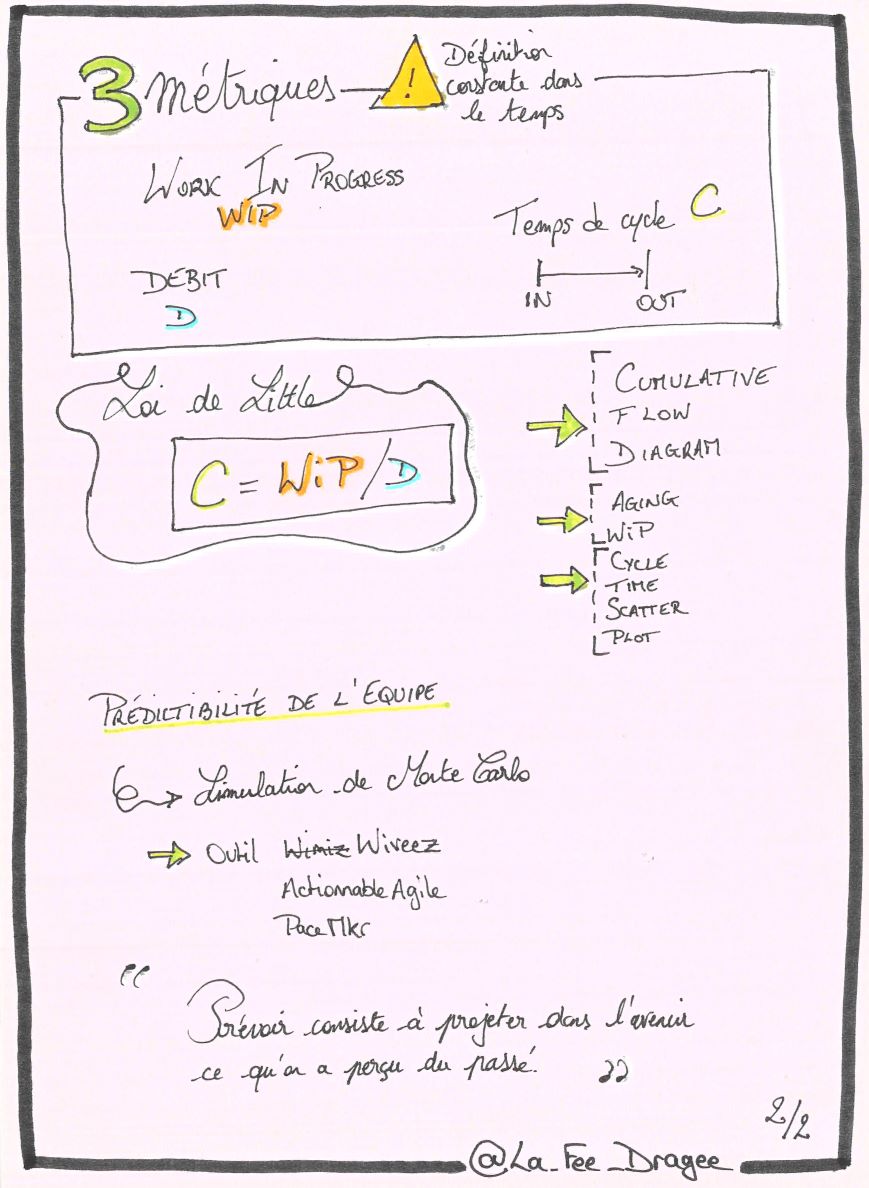 3 Métriques
!
Définition
constante dans
le temps
WORK IN PROGRESS
WIP
Temps de cycle C
IN OUT
DEBIT
D
Loi de Little
C = WiP/D
CUMULATIVE
FLOW
DIAGRAM
AGING
WiP
CYCLE
TIME
SCATTER
PLOT
PRÉDICTIBILITÉ DE L'EQUIPE
Simulation de Monte Carlo
Outil Wimiz Wiveez
Actionnable Agile
PaceMkr
“
Prévoir consiste à projeter dans l'avenir
ce qu'on a perçu du passé. ”
2/2
@La_Fee_Dragee